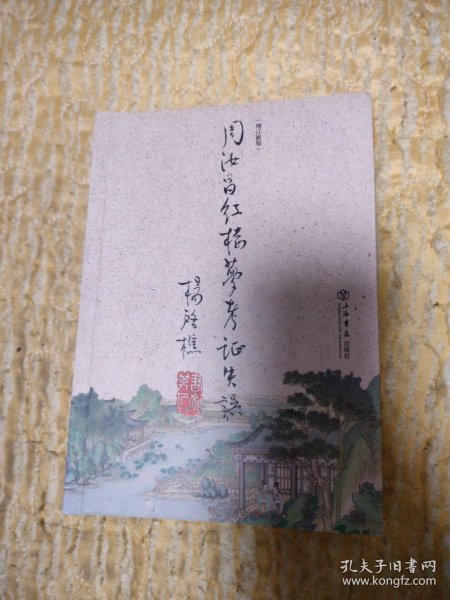 （增订新版）
周汝昌红楼梦考证失误
杨启樵
上海书店出版社
孔夫子旧书网
www.kongfz.com